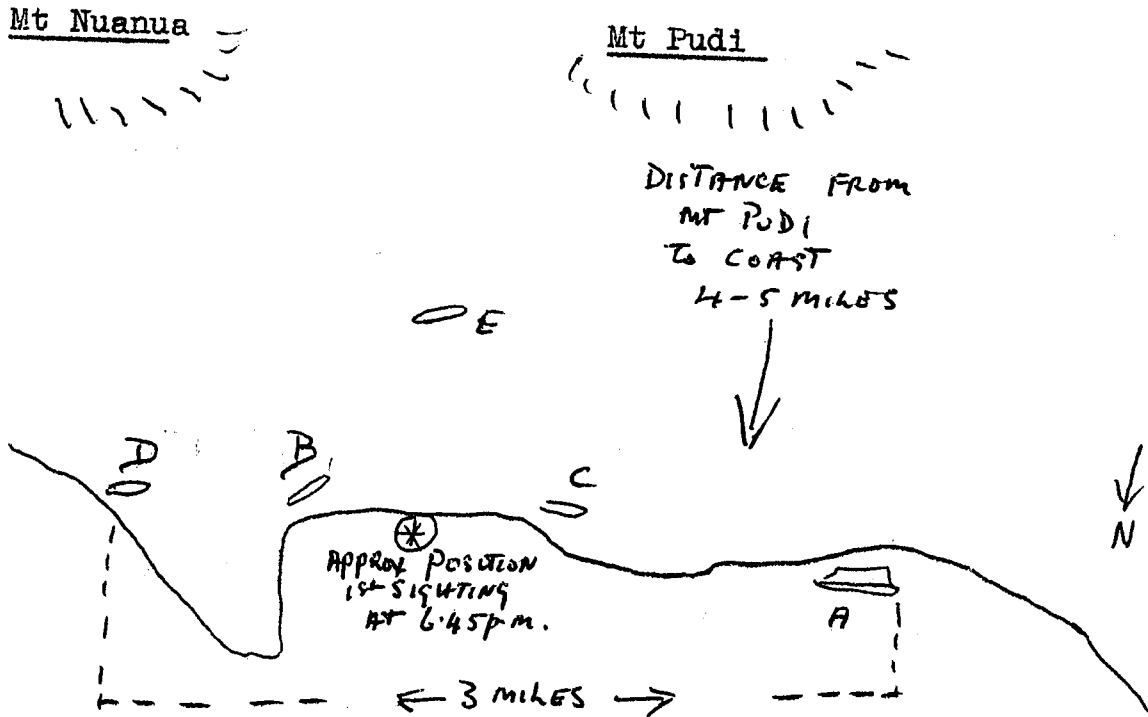 Mt Nuanua
Mt Pudi
DISTANCE FROM
MT PUDI
TO COAST
4-5 MILES
E
D
B
C
N
APPROX POSITION
1st SIGHTING
AT 6.45 p.m.
A
3 MILES